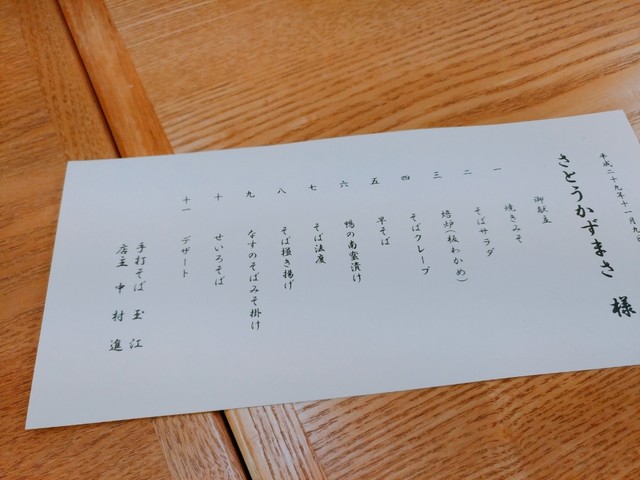 平成二十九年十一月九日
さとうかずまさ 様
御献立
一 焼きみそ
二 そばサラダ
三 焙炉(板わかめ)
四 そばクレープ
五 早そば
六 鴨の南蛮漬け
七 そば法度
八 そば掻き揚げ
九 なすのそばみそ掛け
十 せいろそば
十一 デザート
手打そば 玉江
店主 中村 進